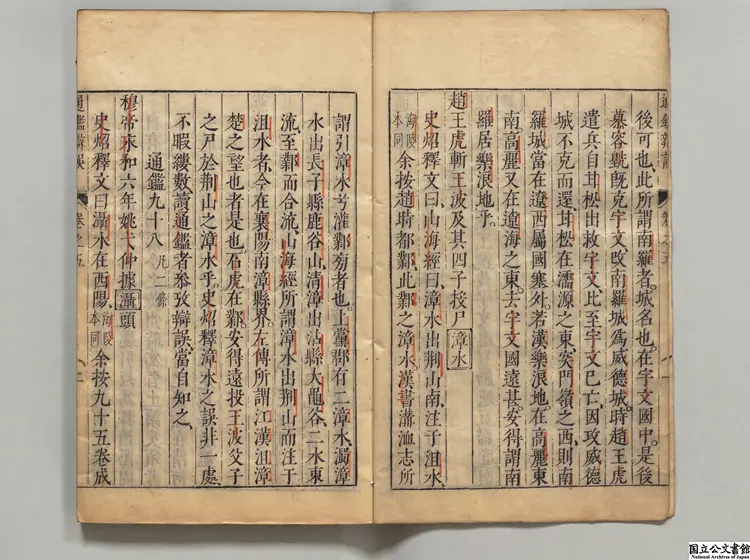 後可也此所謂南羅者城名也在宇文國中是後
慕容皝既克宇文改南羅城爲威德城時趙王虎
遣兵自甘松出救宇文比至宇文已亡因攻威德
城不克而還甘松在濡源之東突門嶺之西則南
羅城當在遼西屬國塞外若漢樂浪地在高麗東
南高麗又在遼海之東去宇文國遠甚安得謂南
羅居樂浪地乎
趙王虎斬王波及其四子投尸漳水
史炤釋文曰山海經曰漳水出荆山南注于沮水
海陵本同余按趙時都鄴此鄴之漳水漢書溝洫志所
通鑑辯誤 卷之五
謂引漳水兮灌鄴旁者也上黨郡有二漳水濁漳
水出長子縣鹿谷山清漳出沾縣大黽谷二水東
流至鄴而合流山海經所謂漳水出荆山而注于
沮水者今在襄陽南漳縣界左傳所謂江漢沮漳
楚之望也者是也石虎在鄴安得遠投王波父子
之尸於荆山之漳水乎史炤釋漳水之誤非一處
不暇縷數讀通鑑者參攷辯誤當自知之
通鑑九十八 凡二條
穆帝永和六年姚弋仲據灄頭
史炤釋文曰灄水在西陽海陵本同余按九十五卷成
通鑑辯誤 卷之五
国立公文書館
National Archives of Japan